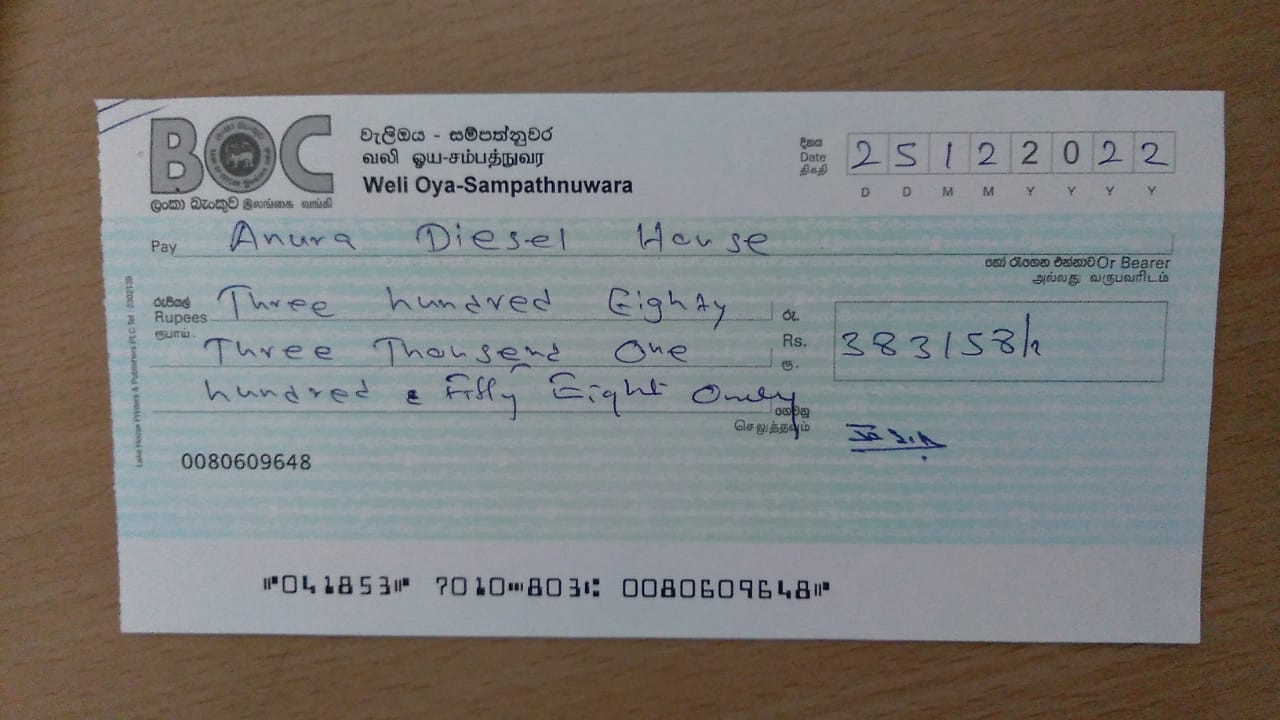 BOC
ලංකා බැංකුව இலங்கை வங்கி
වැලිඔය - සම්පත්නුවර
வலி ஓயா-சம்பத்நுவர
Weli Oya-Sampathnuwara
දිනය
Date
திகதி
2 5 1 2 2 0 2 2
D D M M Y Y Y Y
Pay Anura Diesel House
හෝ රැගෙන එන්නාට Or Bearer
அல்லது வருபவரிடம்
රුපියල්
Rupees
ரூபாய்
Three hundred Eighty
Three Thousend One
hundred & Fifty Eight Only
රු.
Rs.
ரூ.
383158/-
ගෙවනු
செலுத்தவும்
0080609648
Lake House Printers & Publishers PLC Tel : 2302139
⑈041853⑈ 7010⑉803⑆ 0080609648⑈